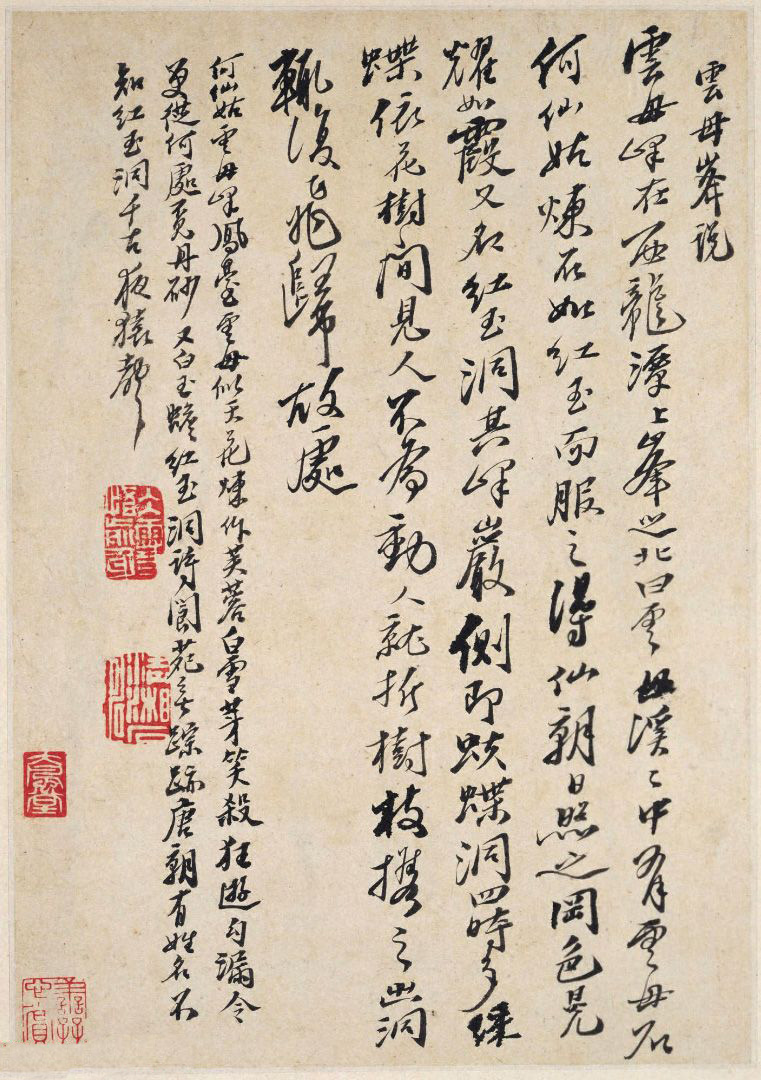 雲母峯説
雲母峰在西龍潭上峯之北曰雲母溪〻中有雲母石
何仙姑煉石如紅玉而服之得仙朝日照之岡色晃
耀如霞又名紅玉洞其峰巖側即蛺蝶洞四時多綵
蝶依花樹間見人不為動人就折樹枝携之出洞
輒復飛歸故處
何仙姑雲母峰鳳臺雲母似天花煉作芙蓉白雪芽笑殺狂遊勾漏令
更從何處覓丹砂 又白玉蟾紅玉洞詩閬苑無踪跡唐朝有姓名不
知紅玉洞千古夜猿聲
大風堂